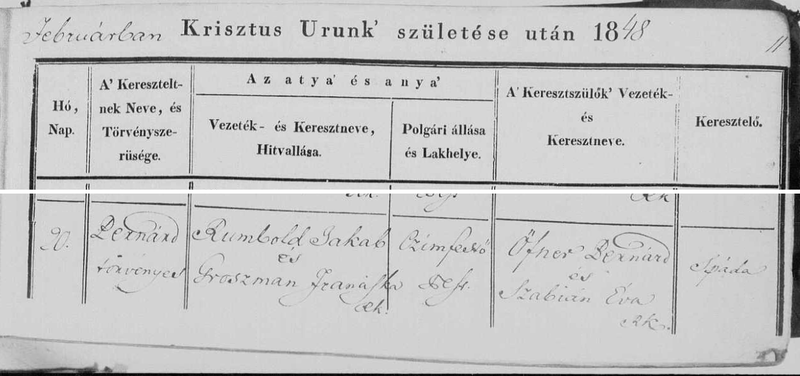 Februárban Krisztus Urunk' születése után 1848
11
Hó,
Nap.
A' Keresztelt-
nek Neve, és
Törvénysze-
rüsége.
Az atya' és anya'
Vezeték- és Keresztneve,
Hitvallása.
Polgári állása
és Lakhelye.
A' Keresztszülők' Vezeték-
és
Keresztneve.
Keresztelő.
20.
Bernárd
törvényes
Rumbold Jakab
és
Groszman Franciska
Czímfestő
Pest
Öfner Bernárd
és
Szabián Éva
RK.
Spáda